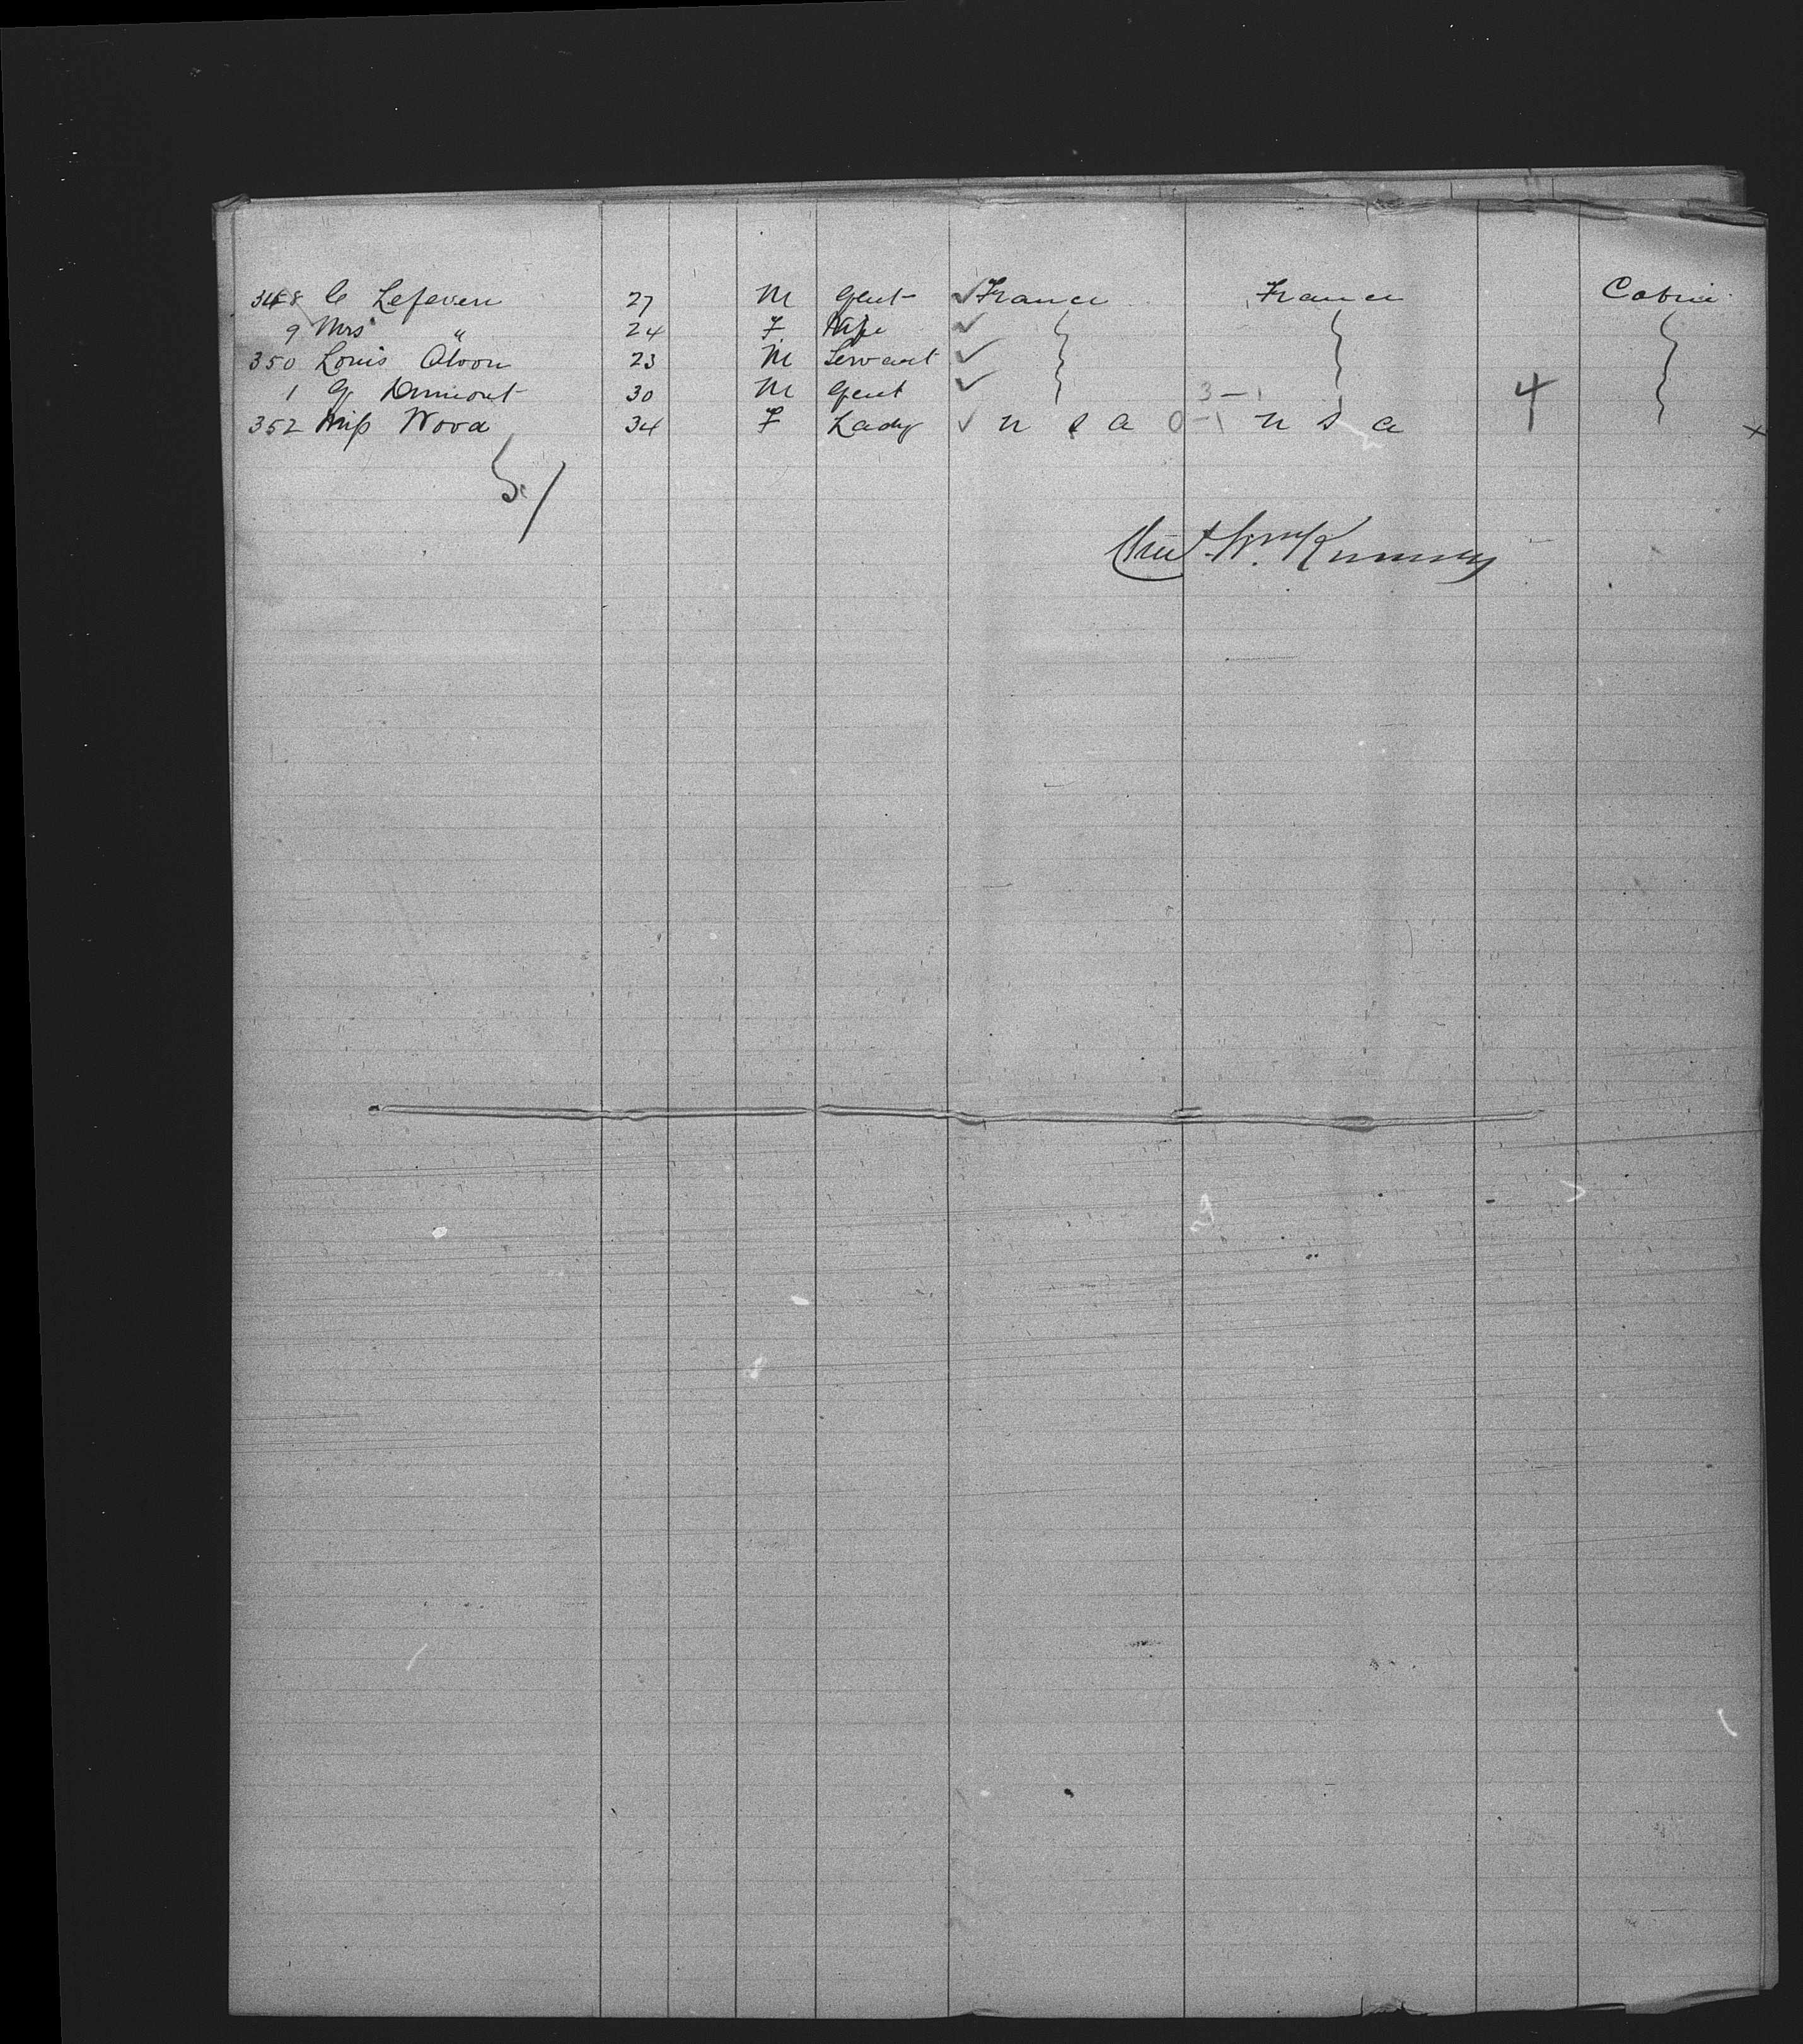 348 C Lefevere 27 M Gent ✓ France France Cabin
9 Mrs " 24 F Wife ✓
350 Louis 23 M Servant ✓
1 G Dumont 30 M Gent ✓ 3-1
352 Miss Wood 34 F Lady ✓ U S A 0-1 U S A 4 x
5/
Wm